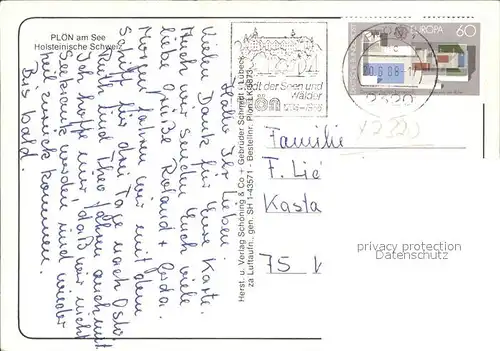 PLÖN am See
Holsteinische Schweiz
Hallo Ihr Lieben
Vielen Dank für Eure Karte.
Auch wir senden Euch viele
liebe Grüße Roland + Gerda.
Morgen fahren wir mit dem
Schiff für drei Tage nach Oslo
Ruth und Theo fahren auch mit
Ich hoffe nur daß wir nicht
Seekrank werden und wieder
heil zurück kommen.
Bis bald.
Herst. u. Verlag Schöning & Co + Gebrüder Schmidt · Lübeck
za Luftaufn. gen. SH 1-43571 · Bestellnr. Plön
Stadt der Seen und
Wälder
PLÖN
EUROPA 60
2320
Familie
F. Lie
Kasta
75
privacy protection
Datenschutz